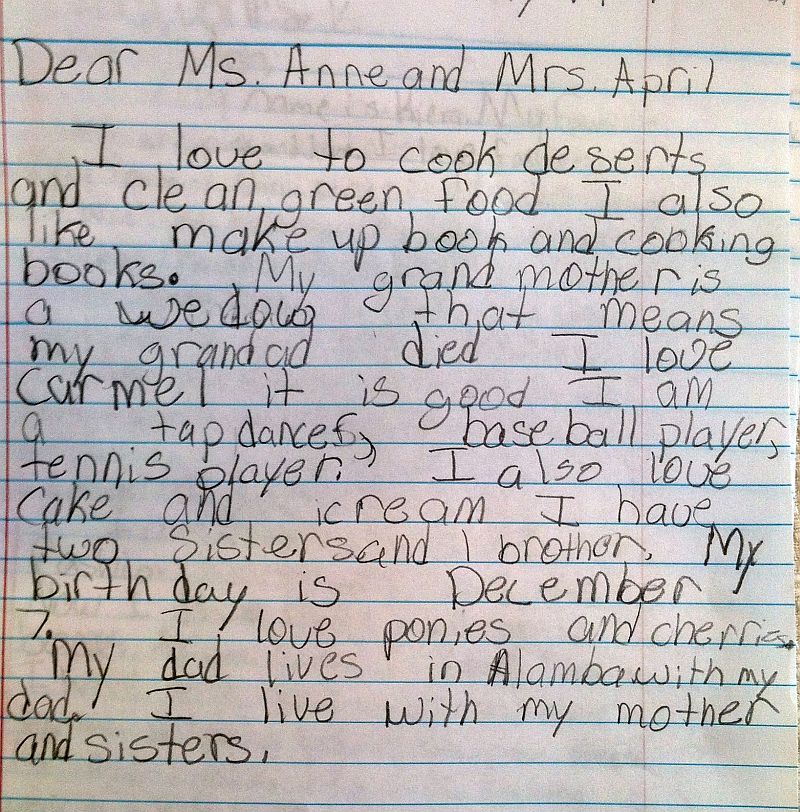 Dear Ms. Anne and Mrs. April
I love to cook deserts
and clean, green food I also
like make up book and cooking
books. My grand mother is
a wedoug that means
my grandad died I love
Carmel it is good I am
a tap dancer, base ball player,
tennis player. I also love
cake and icream I have
two sisters and 1 brother. My
birth day is December
7. I love ponies and cherries.
My dad lives in Alamba with my
dad. I live with my mother
and sisters.